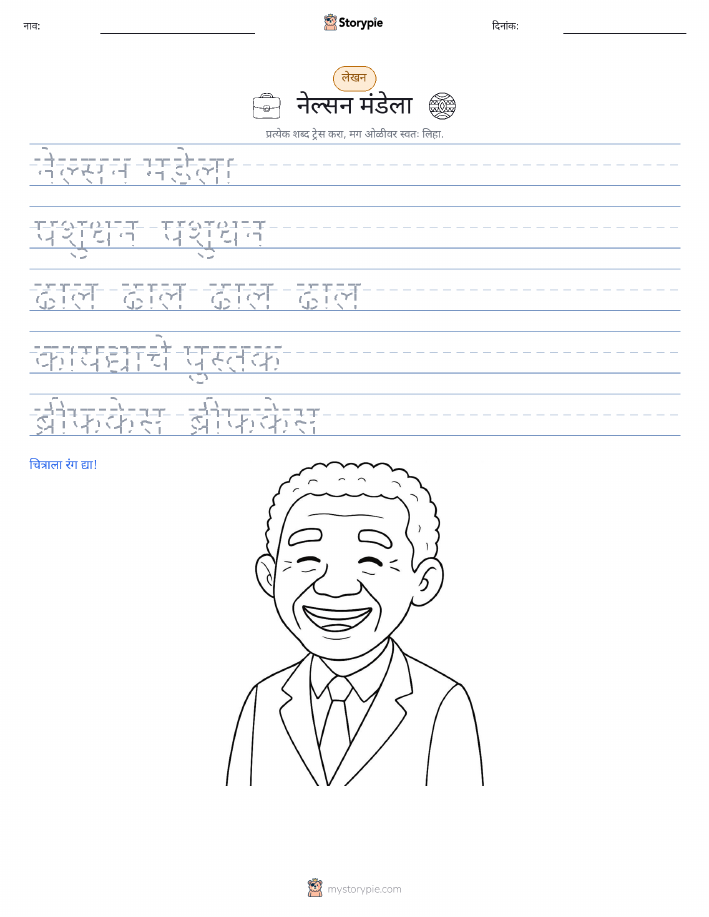 नाव:
Storypie
दिनांक:
लेखन
नेल्सन मंडेला
प्रत्येक शब्द ट्रेस करा, मग ओळीवर स्वतः लिहा.
नेल्सन मंडेला
पशुधन पशुधन
ढाल ढाल ढाल ढाल
कायद्याचे पुस्तक
ब्रीफकेस ब्रीफकेस
चित्राला रंग द्या!
mystorypie.com